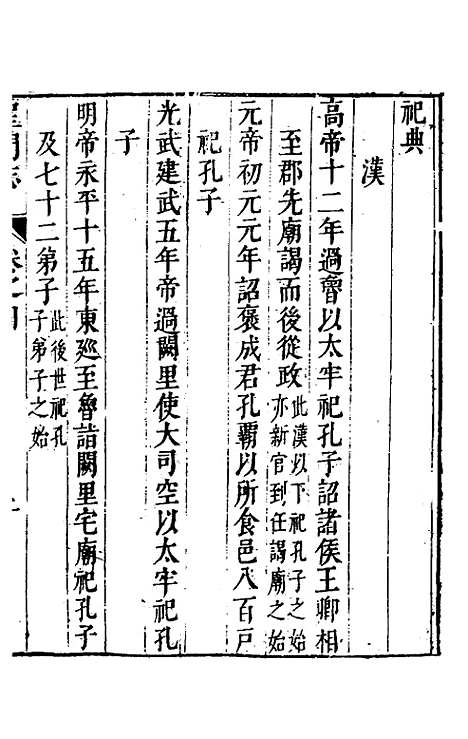 祀典
漢
高帝十二年過魯以太牢祀孔子詔諸侯王卿相
至郡先廟謁而後從政此漢以下祀孔子之始亦新官到任謁廟之始
元帝初元元年詔褒成君孔霸以所食邑八百戸
祀孔子
光武建武五年帝過闕里使大司空以太牢祀孔
子
明帝永平十五年東廵至魯詣闕里宅廟祀孔子
及七十二第子此後世祀孔子第子之始
聖門志 卷之四